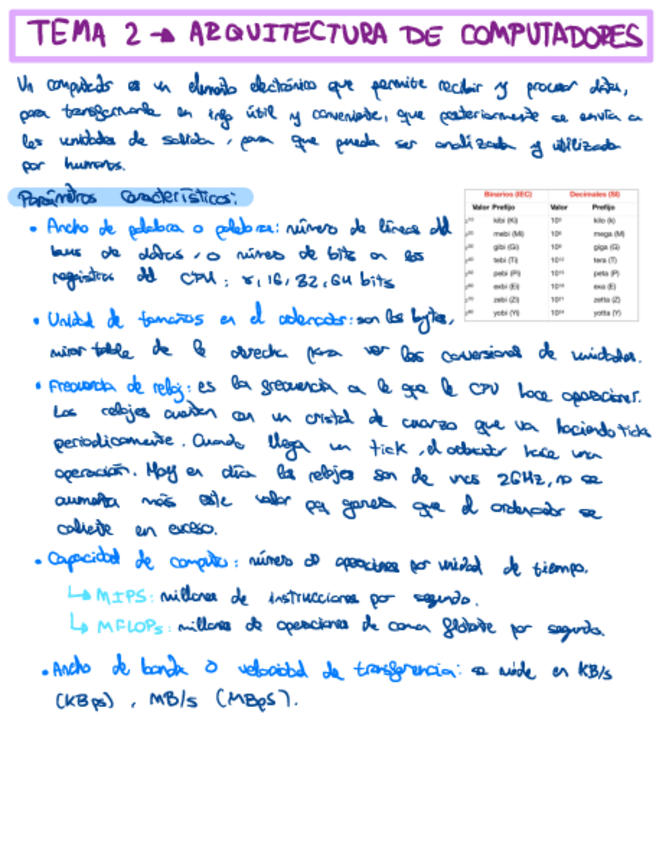 TEMA 2 → ARQUITECTURA DE COMPUTADORES
Un computador es un elemento electrónico que permite recibir y procesar datos,
para transformarla en info útil y conveniente, que posteriormente se envía a
las unidades de salida, para que pueda ser analizada y utilizada
por humanos.
Parámetros característicos:
Binarios (IEC) Decimales (SI)
Valor Prefijo Valor Prefijo
2¹⁰ kibi (Ki) 10³ kilo (k)
2²⁰ mebi (Mi) 10⁶ mega (M)
2³⁰ gibi (Gi) 10⁹ giga (G)
2⁴⁰ tebi (Ti) 10¹² tera (T)
2⁵⁰ pebi (Pi) 10¹⁵ peta (P)
2⁶⁰ exbi (Ei) 10¹⁸ exa (E)
2⁷⁰ zebi (Zi) 10²¹ zetta (Z)
2⁸⁰ yobi (Yi) 10²⁴ yotta (Y)
• Ancho de palabra o palabra: número de líneas del
bus de datos, o número de bits en los
registros del CPU: 8, 16, 32, 64 bits
• Unidad de tamaños en el ordenador: son los bytes,
mirar tabla de la derecha para ver las conversiones de unidades.
• Frecuencia de reloj: es la frecuencia a la que la CPU hace operaciones.
Los relojes cuentan con un cristal de cuarzo que va haciendo ticks
periódicamente. Cuando llega un tick, el ordenador hace una
operación. Hoy en día los relojes son de unos 2GHz, no se
aumenta más este valor pq genera que el ordenador se
caliente en exceso.
• Capacidad de computo: número de operaciones por unidad de tiempo.
↳ MIPS: millones de instrucciones por segundo.
↳ MFLOPs: millones de operaciones de coma flotante por segundo.
• Ancho de banda o velocidad de transferencia: se mide en KB/s
(KBps), MB/s (MBps).